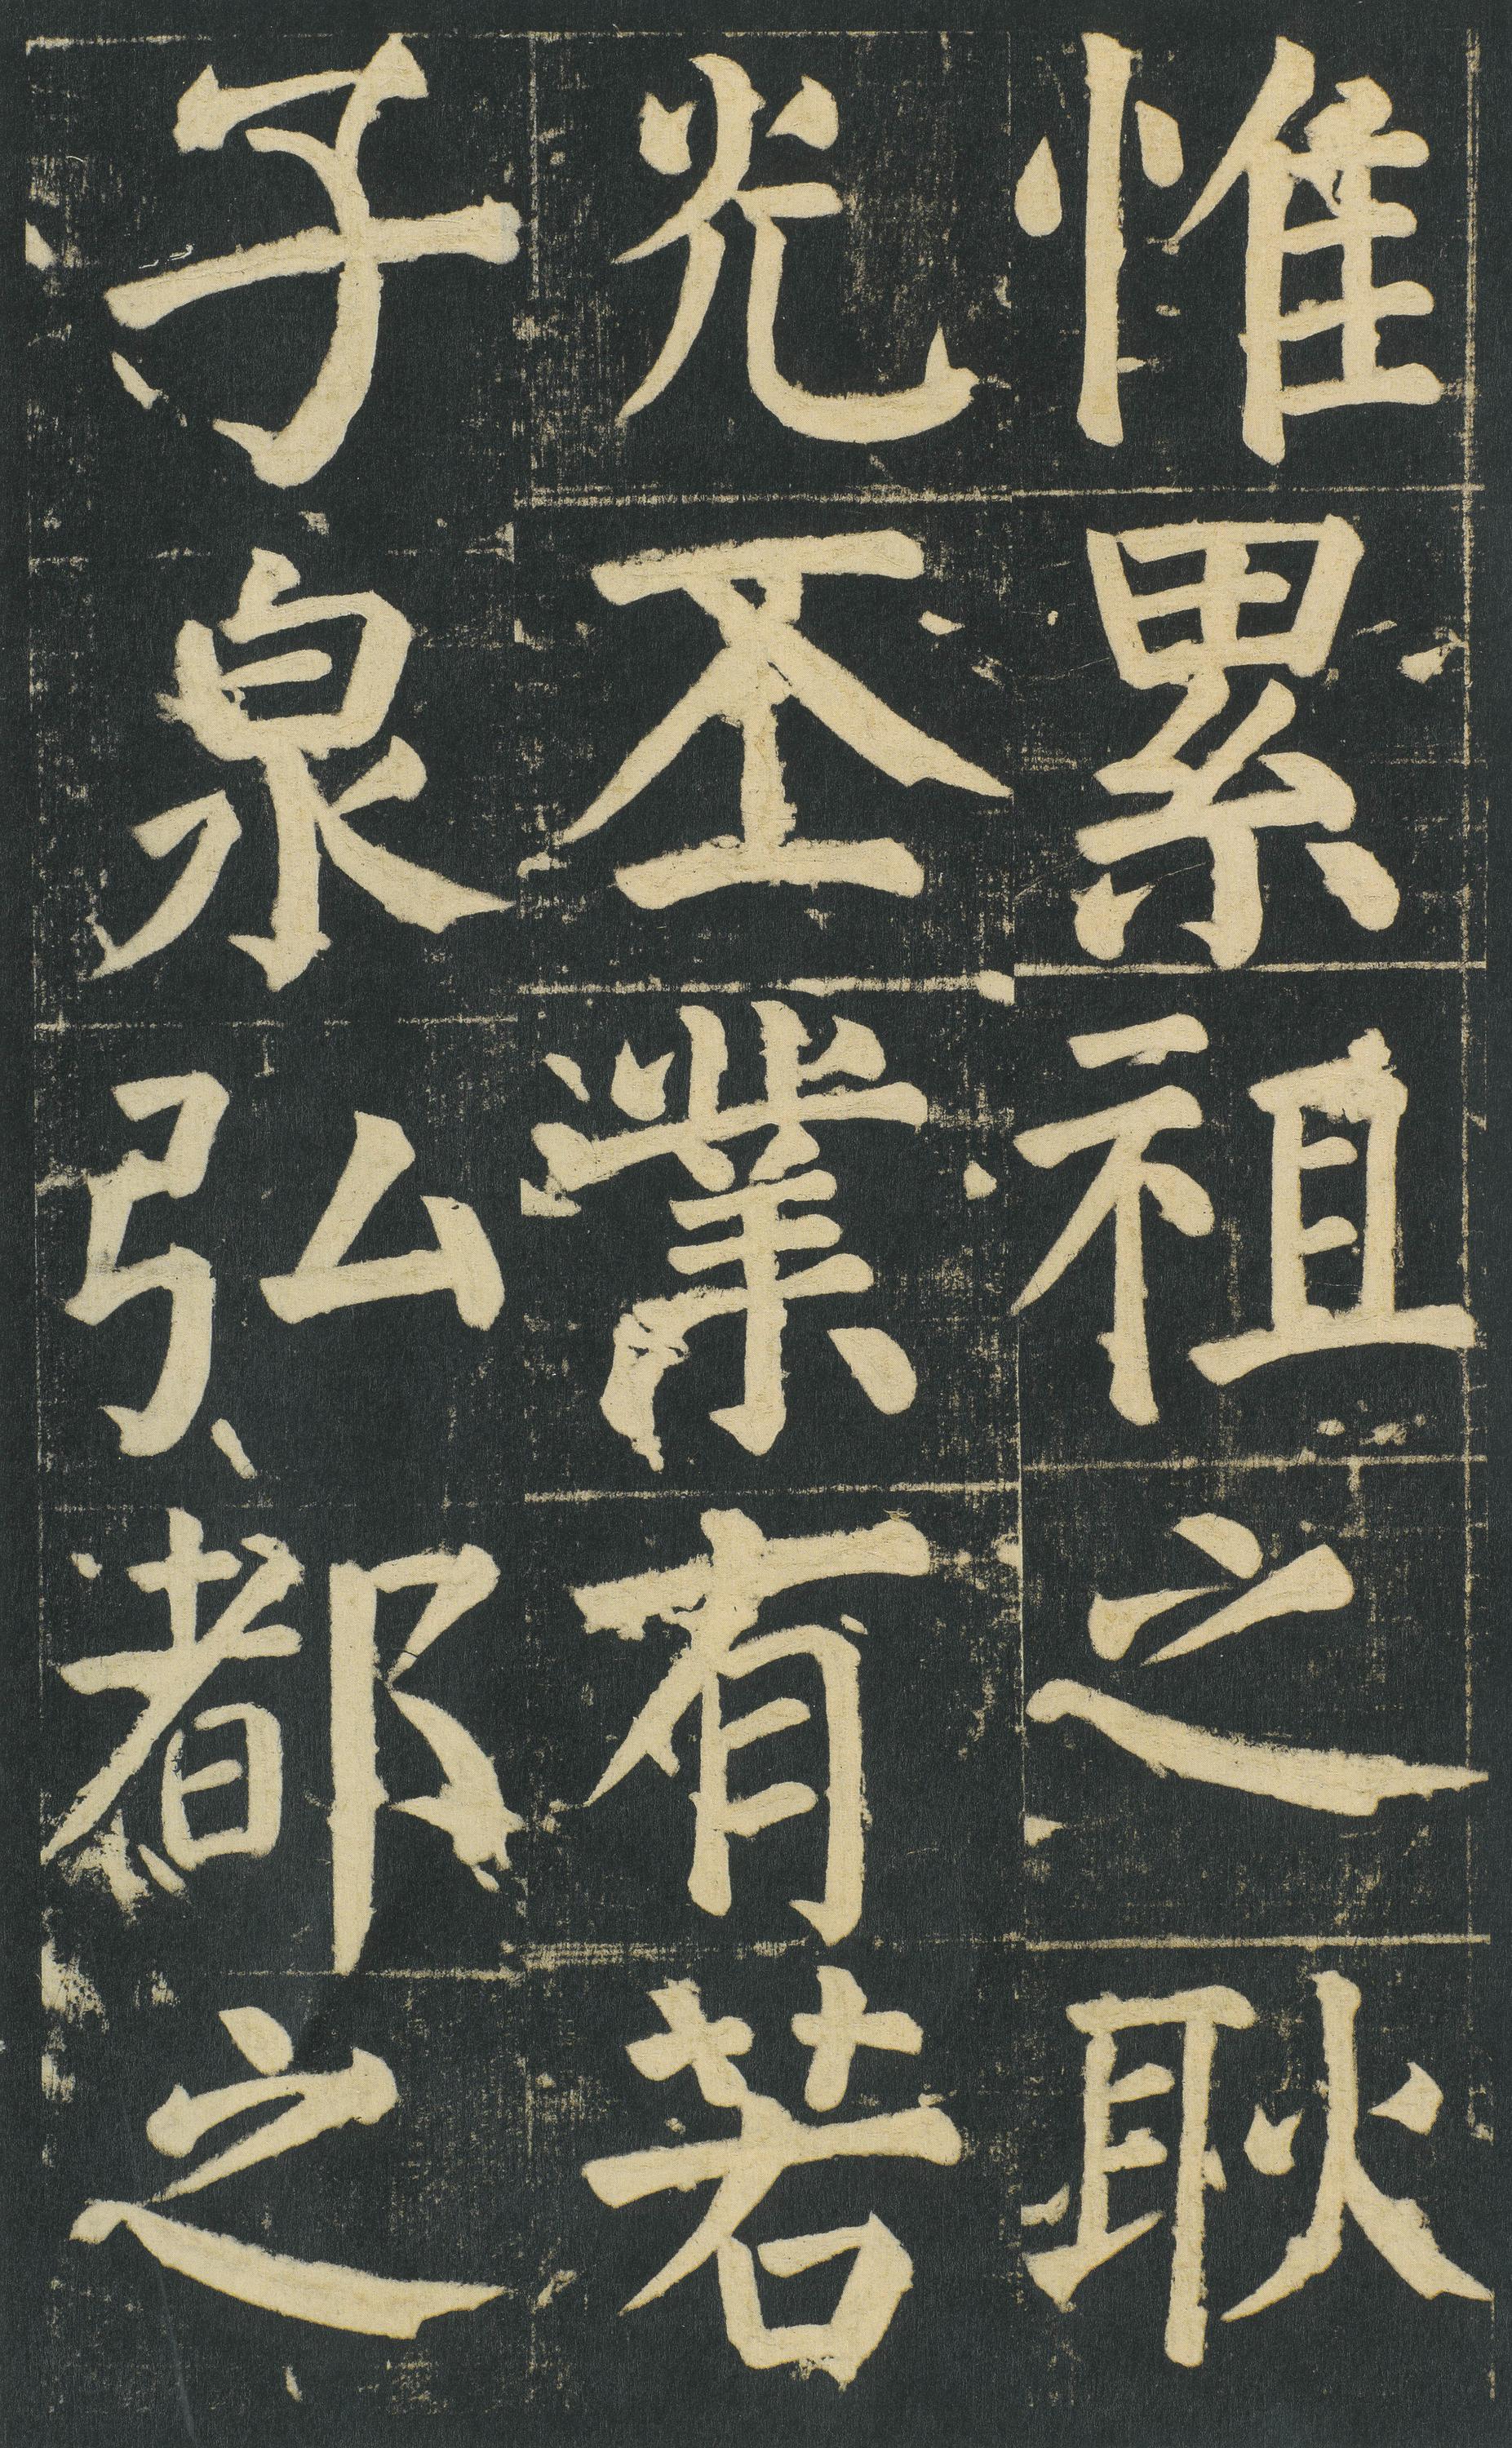 惟累祖之耿
光丕業有若
子泉弘都之